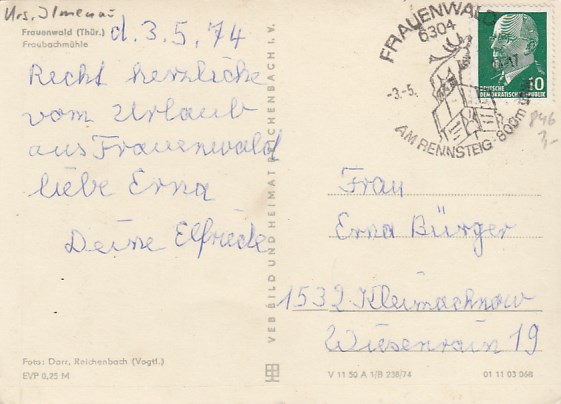 Krs. Ilmenau
Frauenwald (Thür.)
Fraubachmühle
d. 3.5.74
Recht herzliche
vom Urlaub
aus Frauenwald
liebe Erna
Deine Elfriede
Foto: Darr, Reichenbach (Vogtl.)
EVP 0,25 M
VEB BILD UND HEIMAT REICHENBACH I. V.
FRAUENWALD
6304
-3.-5.
AM RENNSTEIG · 800m
10
DEUTSCHE
DEMOKRATISCHE REPUBLIK
P46
3,-
Frau
Erna Bürger
1532 Kleimachnow
Wiesenrain 19
V 11 50 A 1/B 238/74
01 11 03 066